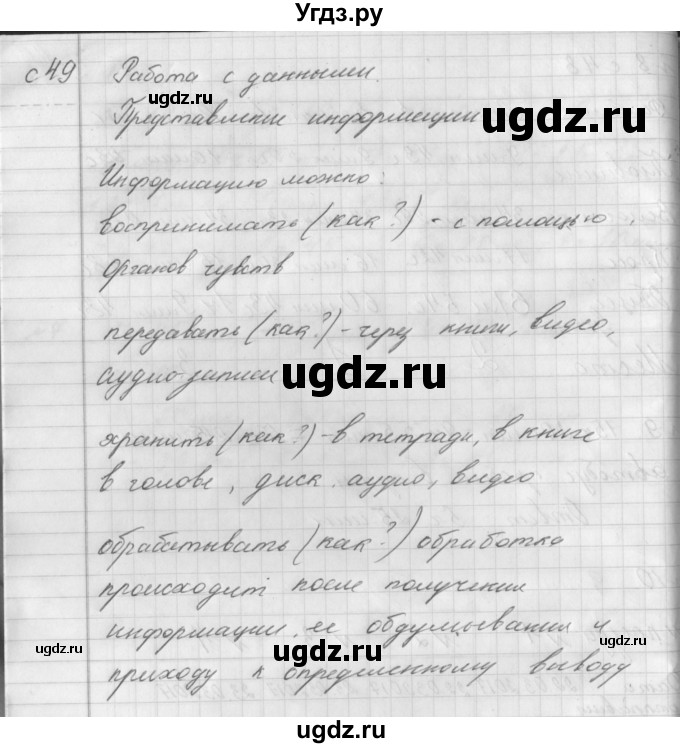 Угдз.ру
с 49 Работа с данными.
ugdz.ru
Представление информации ugdz.ru
Информацию можно:
воспринимать (как?) - с помощью
органов чувств
передавать (как?) - через книги, видео,
аудио-записи ugdz.ru
хранить (как?) - в тетради, в книге
в голове, диск. аудио, видео
ugdz.ru
обрабатывать (как?) обработка
происходит после получения
ugdz.ru информации, ее обдумывания и
приходу к определенному выводу
ugdz.ru
ugdz.ru
ugdz.ru